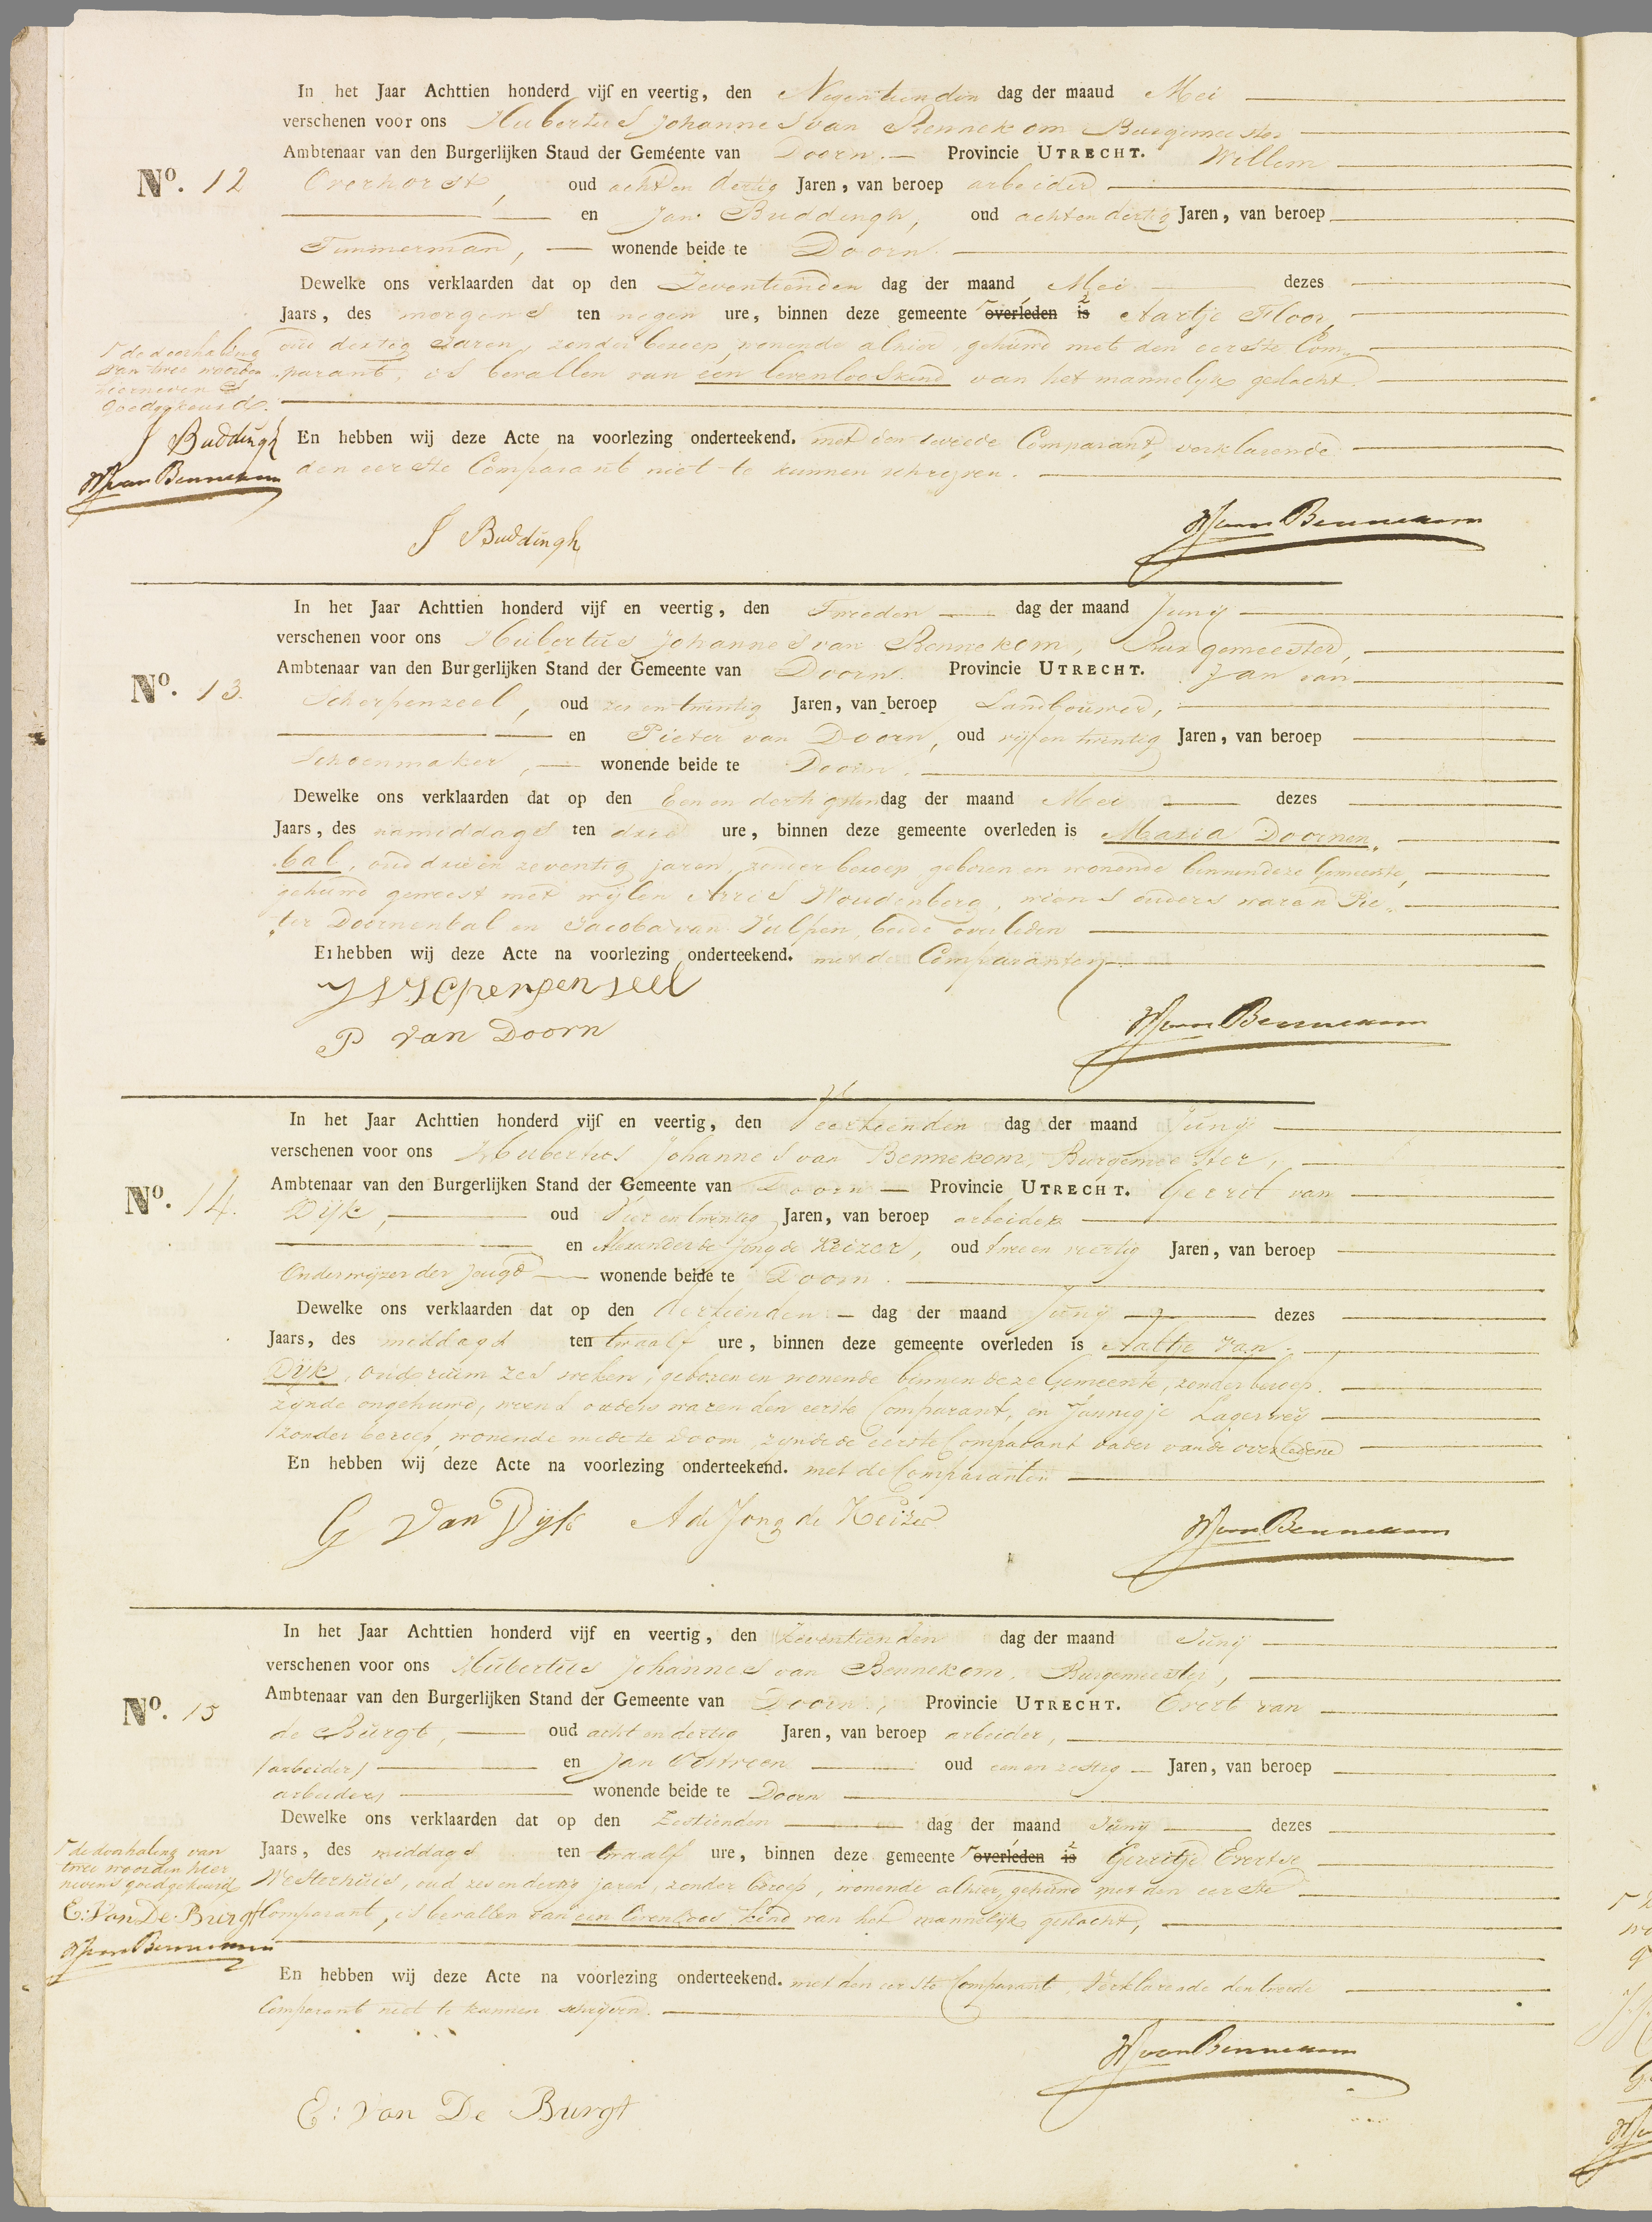 In het Jaar Achttien honderd vijf en veertig, den Negentienden dag der maand Mei
verschenen voor ons Hubertus Johannes van Bennekom Burgemeester
Ambtenaar van den Burgerlijken Stand der Gemeente van Doorn. Provincie UTRECHT. Willem
No. 12 Overhorst, oud acht en dertig Jaren, van beroep arbeider
en Jan Buddingh, oud acht en dertig Jaren, van beroep
Timmerman, wonende beide te Doorn.
Dewelke ons verklaarden dat op den Zeventienden dag der maand Mei dezes
Jaars, des morgens ten negen ure, binnen deze gemeente overleden is Aartje Floor,
oud dertig Jaren, zonder beroep, wonende alhier, gehuwd met den eerste Com-
parant, is bevallen van een levenloos kind van het mannelijk geslacht.
de doorhaling
van twee woorden
hiernevens
goedgekeurd.
J Buddingh
HJvan Bennekom
En hebben wij deze Acte na voorlezing onderteekend. met den tweede Comparant, verklarende
den eerste Comparant niet te kunnen schrijven.
J Buddingh
HJvan Bennekom
In het Jaar Achttien honderd vijf en veertig, den Tweeden dag der maand Junij
verschenen voor ons Hubertus Johannes van Bennekom, Burgemeester,
Ambtenaar van den Burgerlijken Stand der Gemeente van Doorn. Provincie UTRECHT. Jan van
No. 13. Scherpenzeel, oud zes en twintig Jaren, van beroep Landbouwer,
en Pieter van Doorn, oud vijf en twintig Jaren, van beroep
Schoenmaker, wonende beide te Doorn.
Dewelke ons verklaarden dat op den Een en dertigsten dag der maand Mei dezes
Jaars, des namiddags ten drie ure, binnen deze gemeente overleden is Maria Doornen-
bal, oud drie en zeventig jaren, zonder beroep, geboren en wonende binnen deze Gemeente,
gehuwd geweest met wijlen Arris Woudenberg, wiens ouders waren Pie-
ter Doornenbal en Jacoba van Tulpen, beide overleden
En hebben wij deze Acte na voorlezing onderteekend. met de Comparanten
P van Doorn
HJvan Bennekom
In het Jaar Achttien honderd vijf en veertig, den Veertienden dag der maand Junij
verschenen voor ons Hubertus Johannes van Bennekom, Burgemeester,
Ambtenaar van den Burgerlijken Stand der Gemeente van Doorn Provincie UTRECHT. Gerrit van
No. 14. Dijk, oud Vier en twintig Jaren, van beroep arbeider
en Alexander de Jong de Keizer, oud twee en veertig Jaren, van beroep
Onderwijzer der Jeugd wonende beide te Doorn.
Dewelke ons verklaarden dat op den dertienden dag der maand Junij dezes
Jaars, des middags ten twaalf ure, binnen deze gemeente overleden is Aaltje van
Dijk, oud ruim zes weken, geboren en wonende binnen deze Gemeente, zonder beroep.
zijnde ongehuwd, wiens ouders waren den eerste Comparant, en Jannigje Lagerweij
zonder beroep, wonende mede te Doorn, zijnde de eerste Comparant vader van de overledene
En hebben wij deze Acte na voorlezing onderteekend. met de Comparanten
G van Dijk A de Jong de Keizer
HJvan Bennekom
In het Jaar Achttien honderd vijf en veertig, den Zeventienden dag der maand Junij
verschenen voor ons Hubertus Johannes van Bennekom, Burgemeester,
Ambtenaar van den Burgerlijken Stand der Gemeente van Doorn, Provincie UTRECHT. Evert van
No. 15 de Burgt, oud acht en dertig Jaren, van beroep arbeider,
(arbeider) en Jan Oostveen oud een en zestig Jaren, van beroep
arbeider, wonende beide te Doorn
Dewelke ons verklaarden dat op den Zestienden dag der maand Junij dezes
Jaars, des middags ten twaalf ure, binnen deze gemeente overleden is Gerritje Evertse
Westerhuis, oud zes en dertig jaren, zonder beroep, wonende alhier, gehuwd met den eerste
Comparant, is bevallen van een levenloos kind van het mannelijk geslacht,
de doorhaling van
twee woorden hier
nevens goedgekeurd
E: Van De Burgt
HJvan Bennekom
En hebben wij deze Acte na voorlezing onderteekend. met den eerste Comparant, Verklarende den tweede
Comparant niet te kunnen schrijven.
HJvan Bennekom
E: Van De Burgt